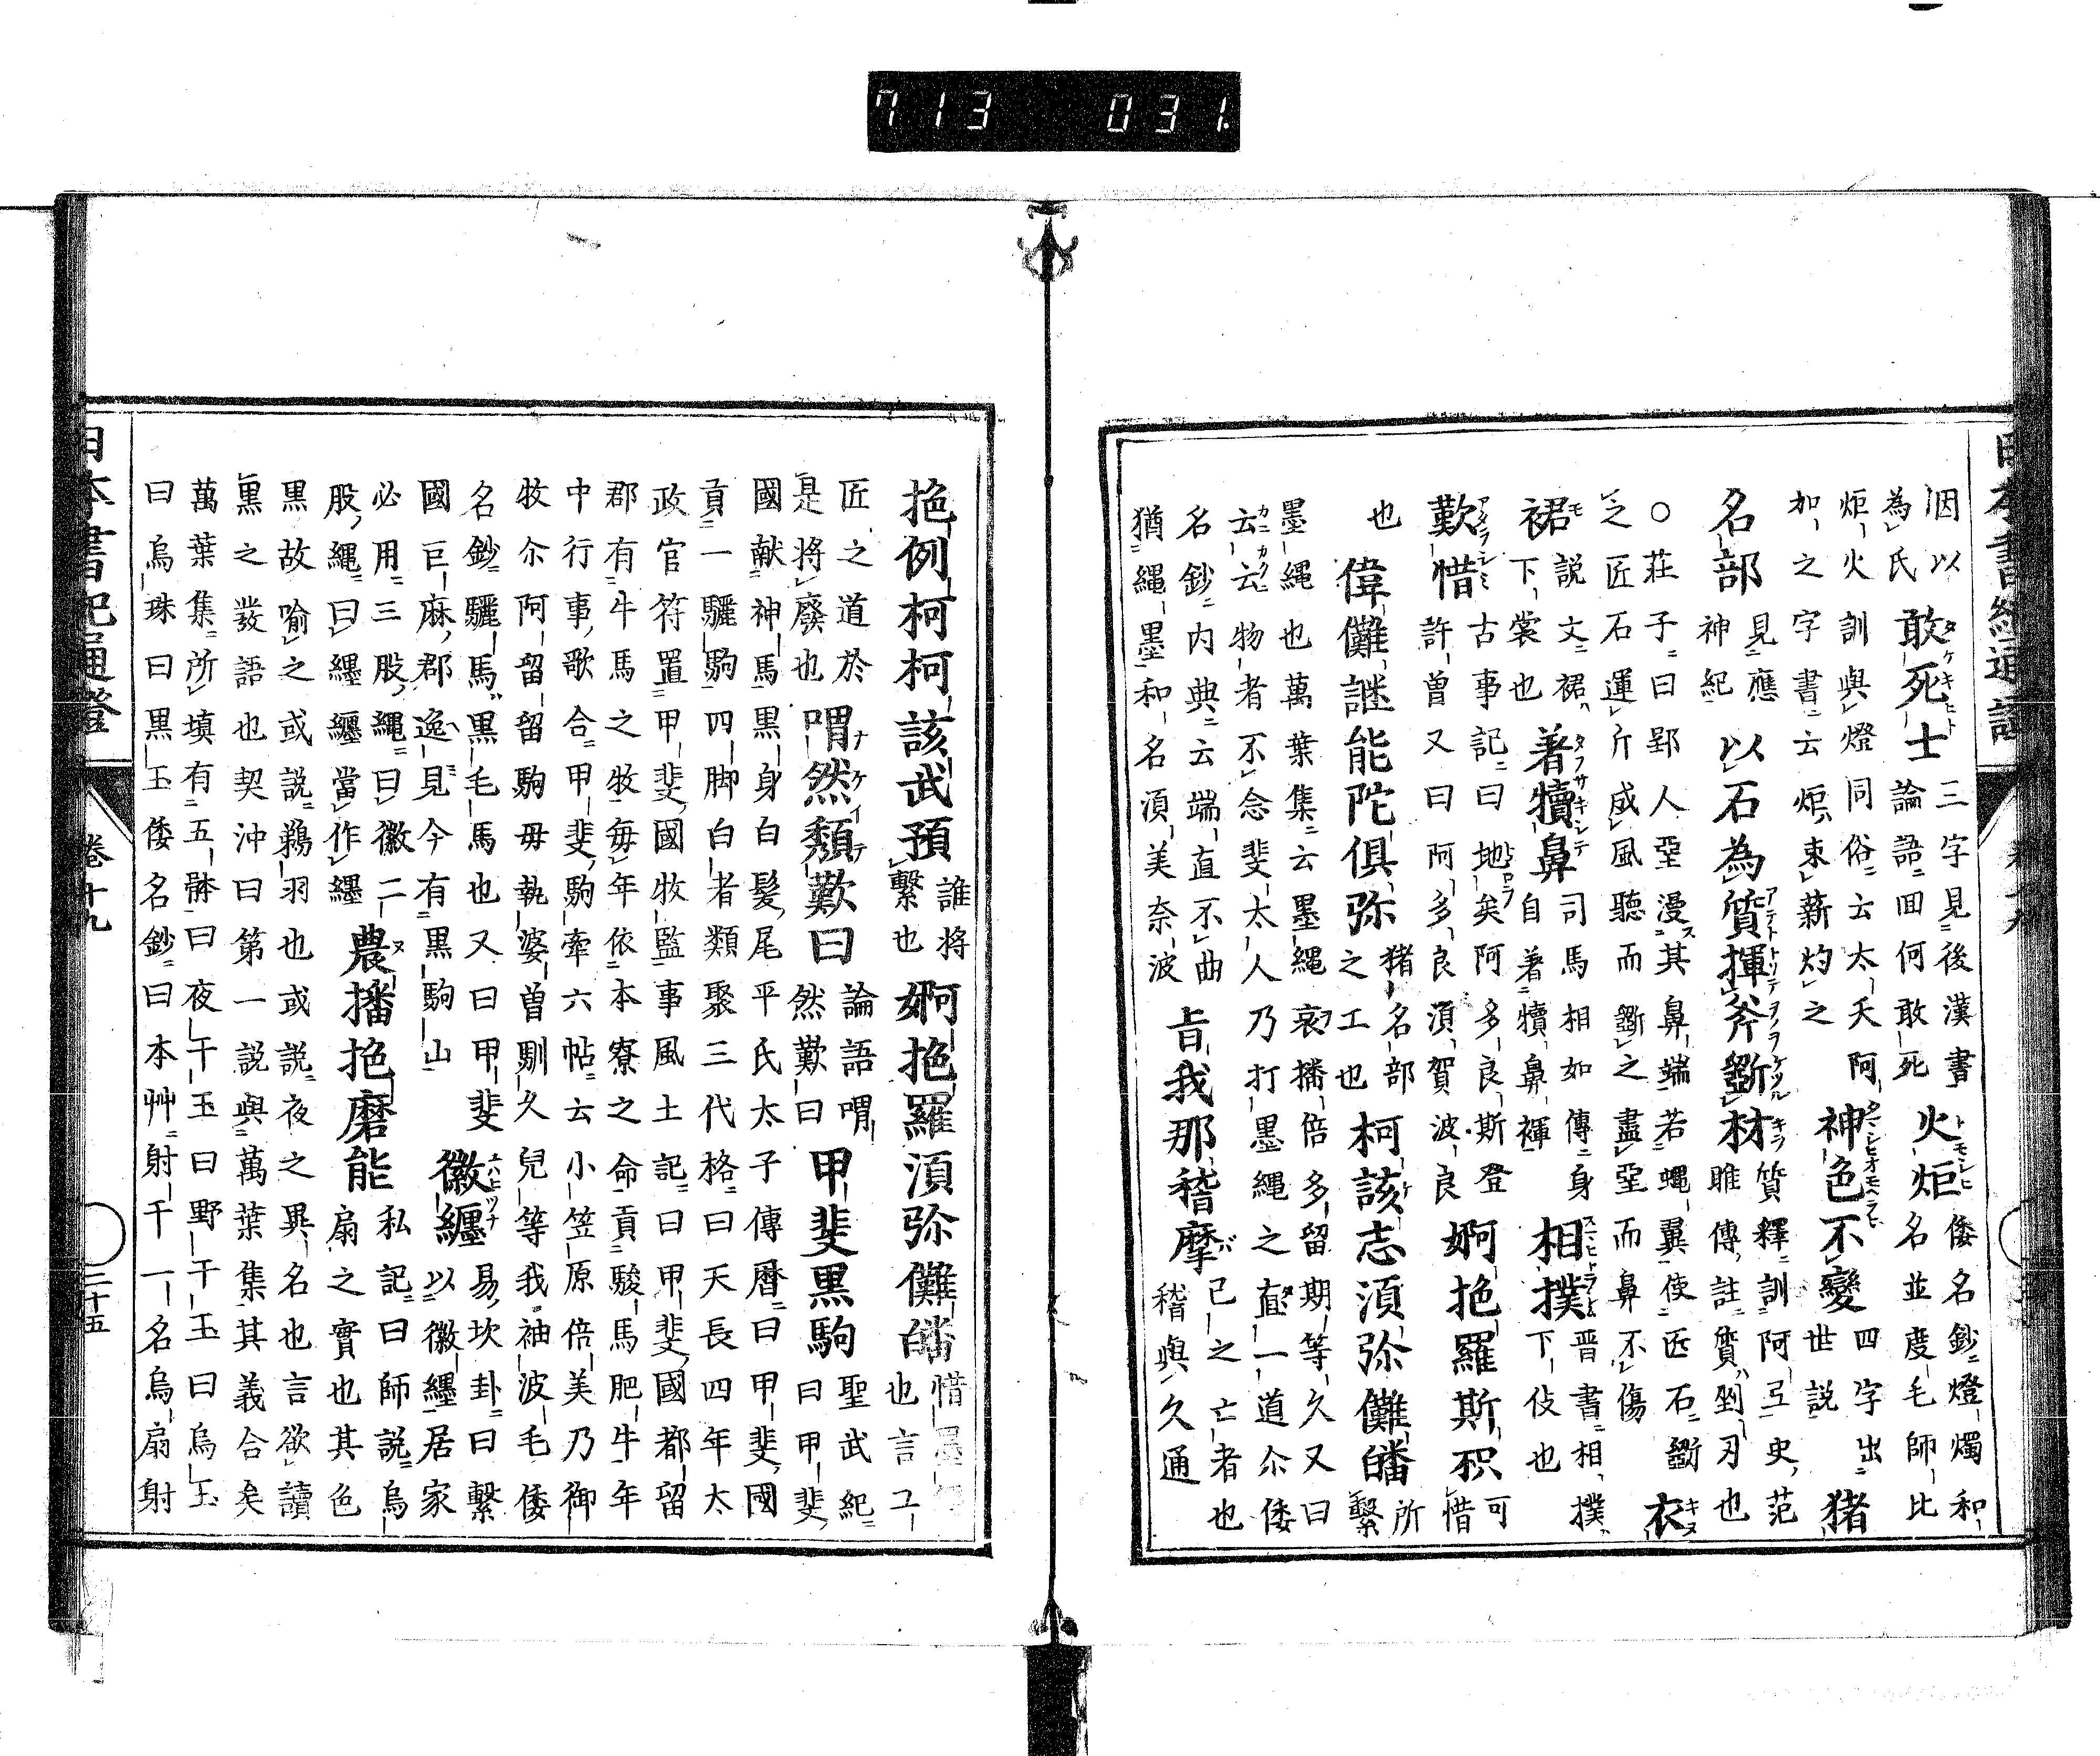 713 031.
日本書紀通證
洇以
為氏
敢死士
三字見後漢書
論語回何敢死
火炬
倭名鈔燈燭和
名並度毛師比
炬火訓與燈同俗云太夫阿
加之字書云炬束薪灼之
神色不變
四字出
世説
猪
名部
見應
神紀
以石為質揮斧斵材
質釋訓阿互史范
睢傳註質剉刃也
○莊子曰郢人堊漫其鼻端若蠅翼使匠石斵
之匠石運斤成風聽而斵之盡堊而鼻不傷
衣
裙
説文裙
下裳也
著犢鼻
司馬相如傳身
自著犢鼻褌
相撲
晋書相撲
下伎也
歎惜
古事記曰地矣阿多良斯登
許曽又曰阿多良湏賀波良
婀拕羅斯枳
可
惜
也
偉儺謎能陀倶弥
猪名部
之工也
柯該志湏弥儺皤
所
繫
墨縄也萬葉集云墨縄哀播倍多留期等久又曰
云云物者不念斐太人乃打墨縄之直一道尒倭
名鈔内典云端直不曲
猶縄墨和名湏美奈波
旨我那稽摩
已之亡者也
稽與久通
拕例柯柯該武預
誰将
繫也
婀拕羅湏弥儺皤
惜墨
也言ユ
匠之道於
是将廢也
喟然頽歎曰
論語喟
然歎曰
甲斐黒駒
聖武紀
曰甲斐
國献神馬黒身白髮尾平氏太子傳暦曰甲斐國
貢一驪駒四脚白者類聚三代格曰天長四年太
政官符置甲斐國牧監事風土記曰甲斐國都留
郡有牛馬之牧毎年依本寮之命貢駿馬肥牛年
中行事歌合甲斐駒牽六帖云小笠原倍美乃御
牧尒阿留留駒毋執婆曽馴久兒等我袖波毛倭
名鈔驪馬黒毛馬也又曰甲斐
國巨麻郡逸見今有黒駒山
徽纒
易坎卦曰繫
以徽纆居家
必用三股縄曰徽二
股縄曰纆纒當作纆
農播拕磨能
私記曰師説烏
扇之實也其色
黒故喩之或説鵜羽也或説夜之異名也言欲讀
黒之發語也契沖曰第一説與萬葉集其義合矣
萬葉集所填有五躰曰夜干玉曰野干玉曰烏玉
曰烏珠曰黒玉倭名鈔曰本艸射干一名烏扇射
日本書紀通證
卷十九
二十五